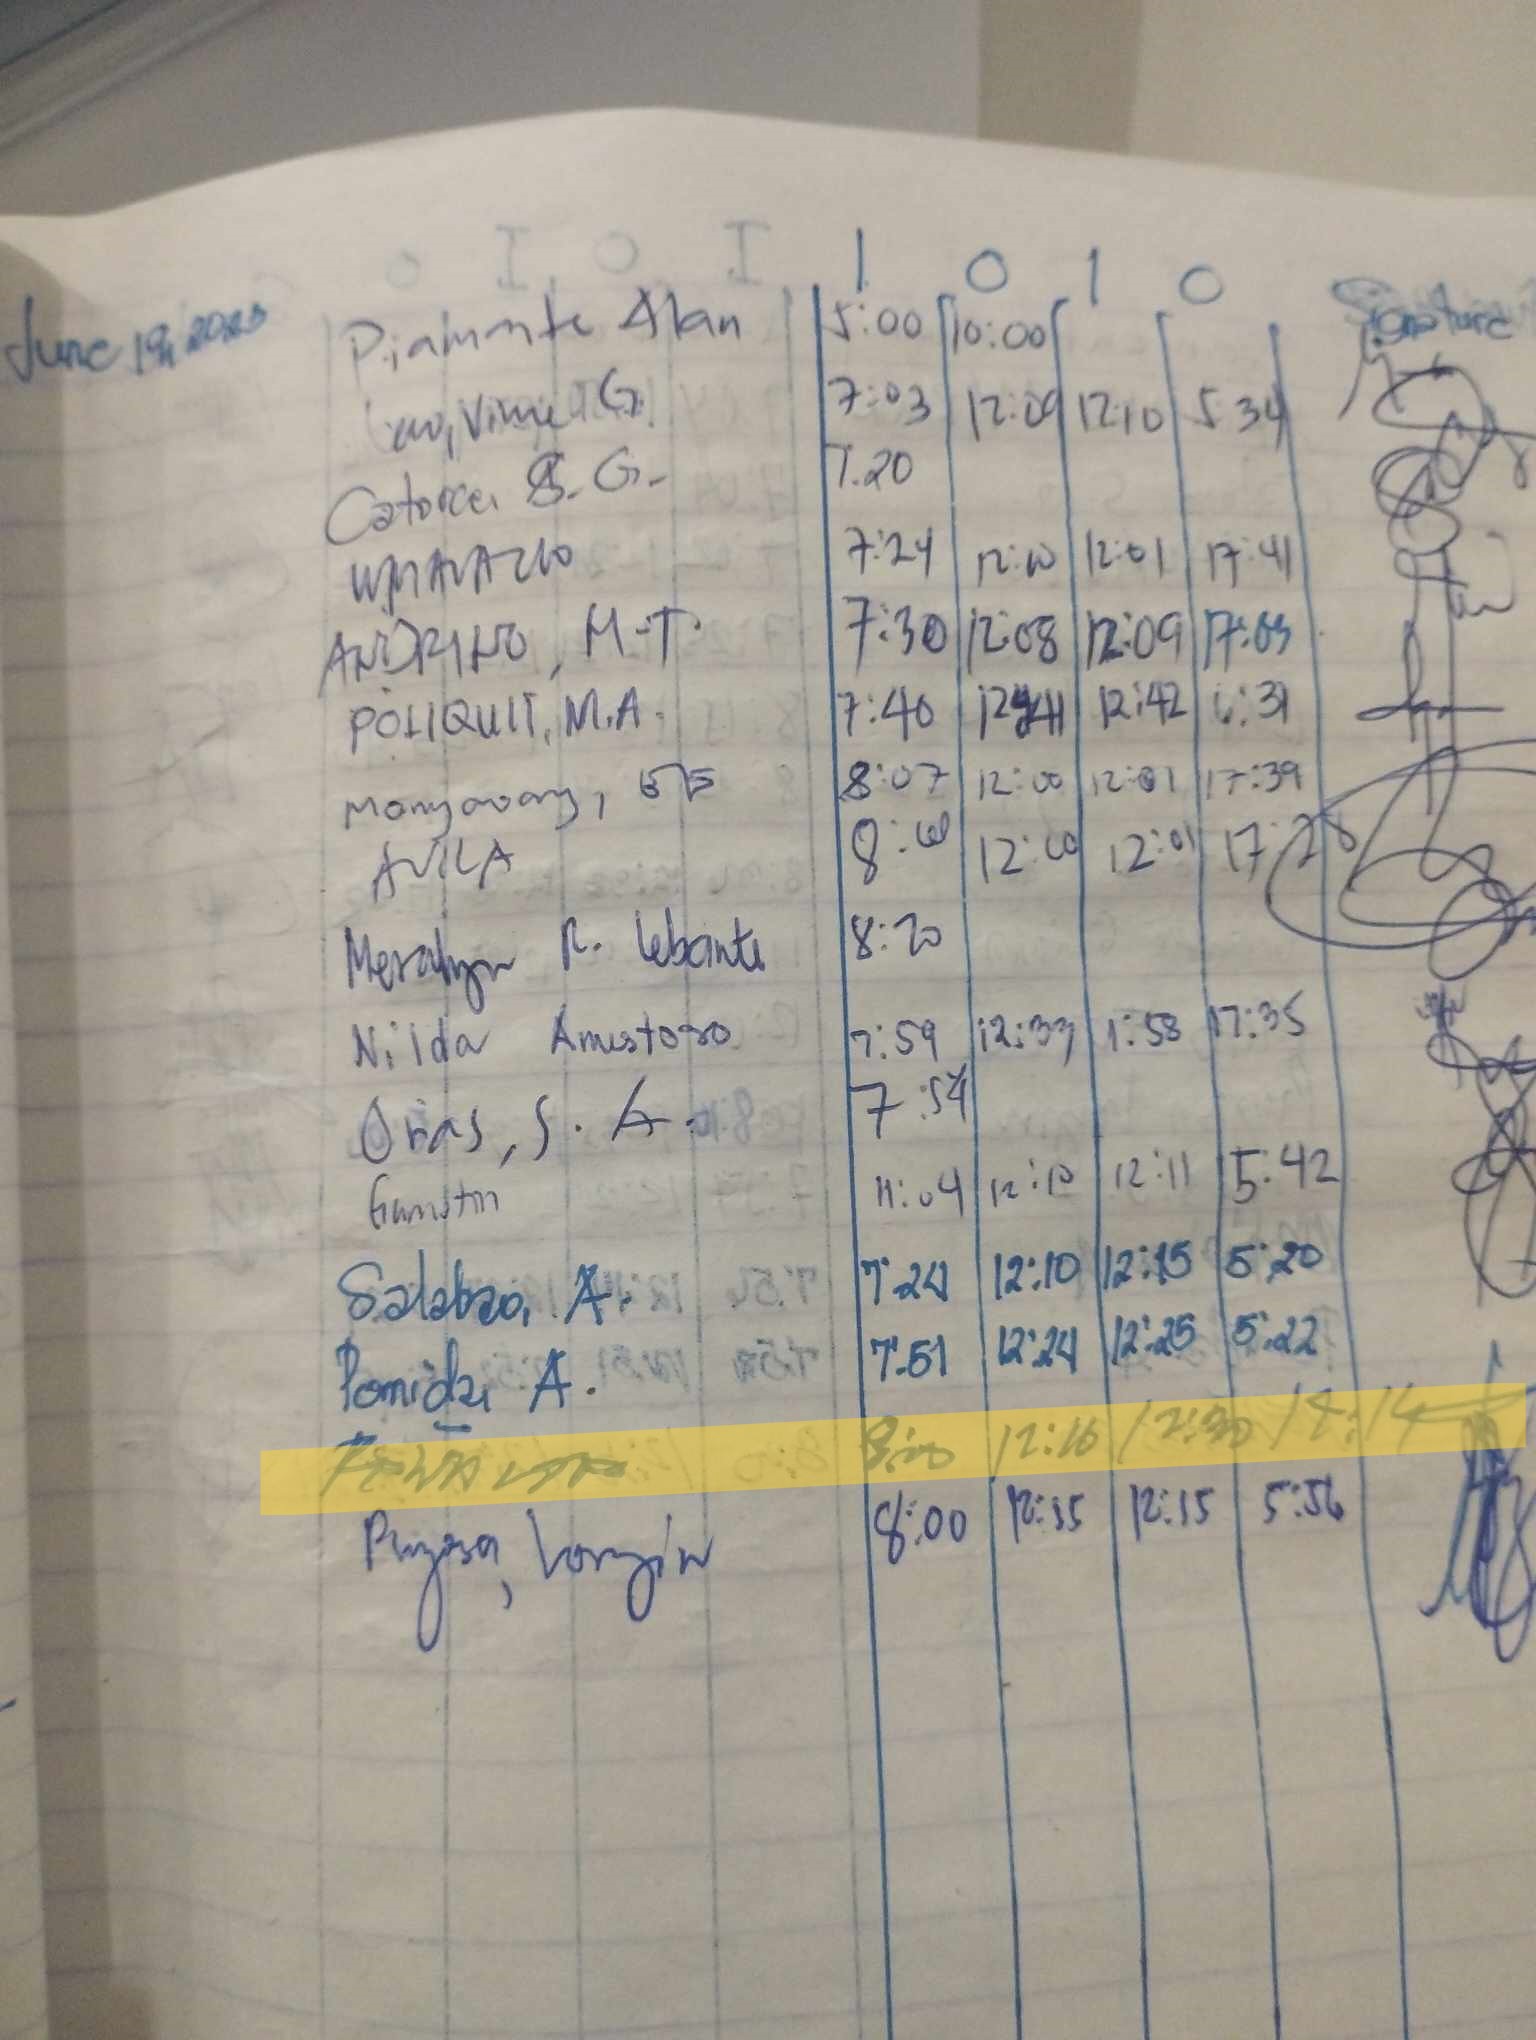 I O I O Signature
June 19, 2023 Piamonte Alan 5:00 10:00
G. 7:03 12:09 12:10 5:34
Catorce, S. G. 7:20
7:24 12:00 12:01 17:41
ANDRINO, M.T. 7:30 12:08 12:09 17:03
POLIQUIT, M.A. 7:40 12:41 12:42 6:31
8:07 12:00 12:01 17:39
AVILA 8:00 12:00 12:01 17:28
Meralyn R. Lebante 8:20
Nilda Amistoso 7:59 12:33 1:58 17:35
Orias, S. A. 7:54
11:04 12:10 12:11 5:42
Salabao, A. 7:24 12:10 12:15 5:20
Pomida, A. 7:51 12:24 12:25 5:22
8:00 12:16 12:30 17:14
8:00 12:15 12:15 5:56